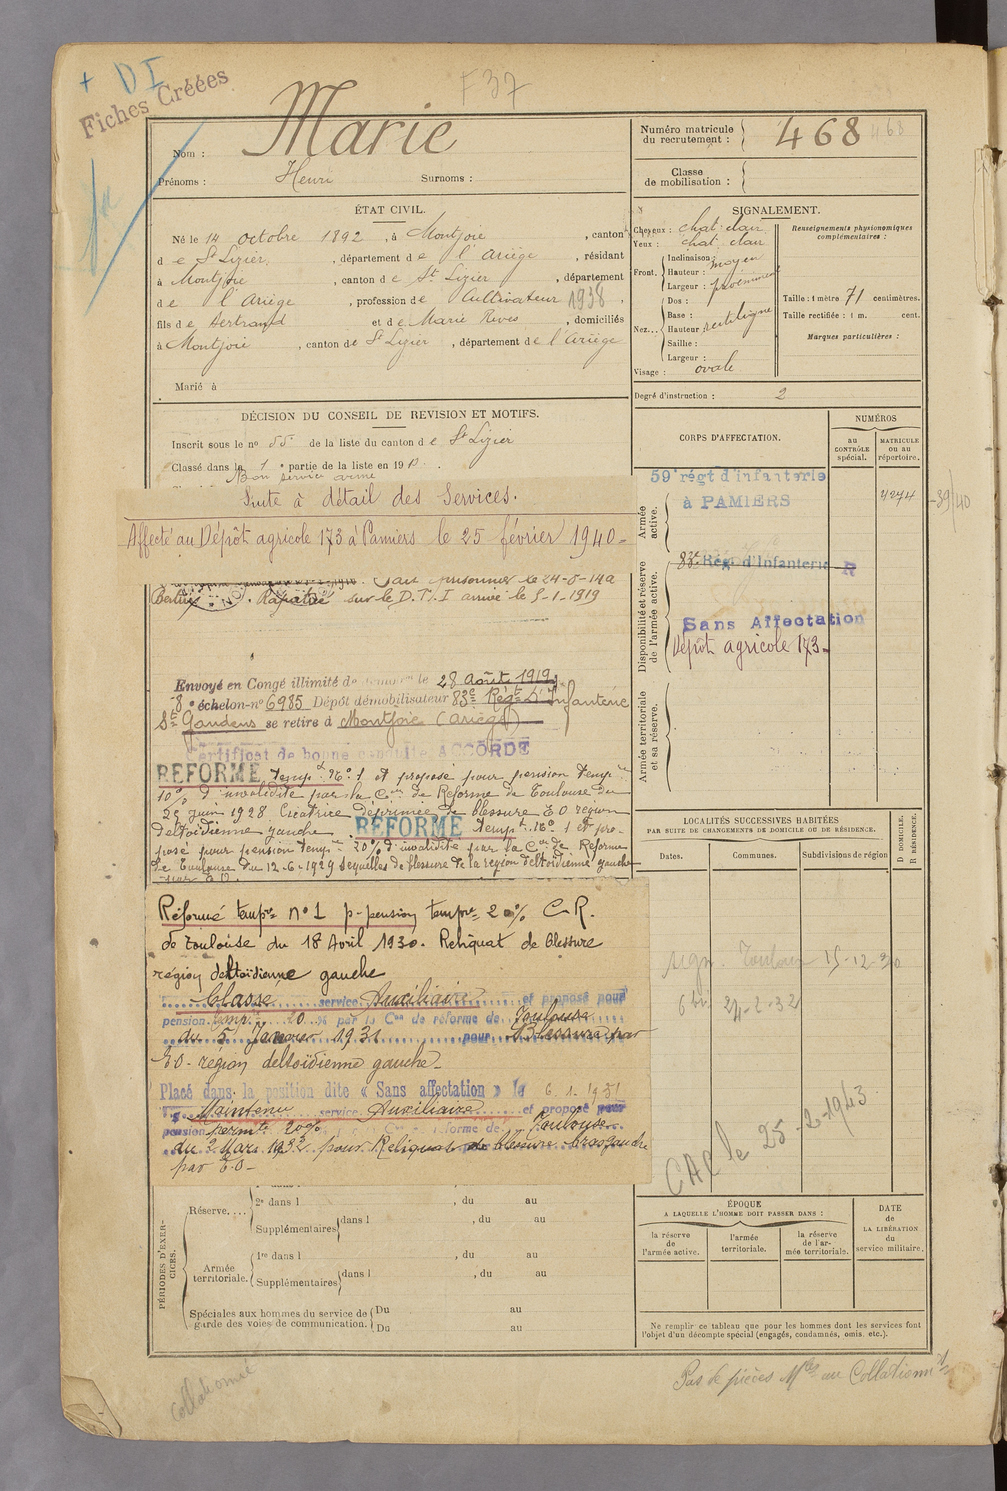 + DI
Fiches Créées
F 37
Nom : Marie
Prénoms : Henri Surnoms :
Numéro matricule du recrutement : 468 468
Classe de mobilisation :
ÉTAT CIVIL.
Né le 14 octobre 1892, à Montjoie, canton
de St Lizier, département de l'Ariège, résidant
à Montjoie, canton de St Lizier, département
de l'Ariège, profession de Cultivateur 1938,
fils de Bertrand et de Marie Rives, domiciliés
à Montjoie, canton de St Lizier, département de l'Ariège
Marié à
SIGNALEMENT.
Cheveux : chat. clair
Yeux : chat. clair
Front, Inclinaison : moyen
Hauteur :
Largeur : proéminent
Nez... Dos :
Base :
Hauteur : rectiligne
Saillie :
Largeur :
Visage : ovale
Renseignements physionomiques complémentaires :
Taille : 1 mètre 71 centimètres.
Taille rectifiée : 1 m. cent.
Marques particulières :
Degré d'instruction : 2
DÉCISION DU CONSEIL DE REVISION ET MOTIFS.
Inscrit sous le no 55 de la liste du canton de St Lizier
Classé dans la 1e partie de la liste en 191
Bon service armé
Suite à détail des Services.
Affecté au Dépôt agricole 173 à Pamiers le 25 février 1940
Fait prisonnier le 24-8-14 a
Bertrix. Rapatrié sur le D.T.I arrivé le 5-1-1919
Envoyé en Congé illimité de le 28 Août 1919,
8e échelon no 6985 Dépôt démobilisateur 83e Régt d'Infanterie
St Gaudens se retire à Montjoie (Ariège)
Certificat de bonne conduite ACCORDÉ
RÉFORMÉ tempt No 1 et proposé pour pension tempre
10% d'invalidité par la Con de Réforme de Toulouse du
25 juin 1928 Cicatrice déprimée de blessure EO région
deltoïdienne gauche. RÉFORMÉ tempt No 1 et pro-
posé pour pension tempre 20% d'invalidité par la Con de Réforme
de Toulouse du 12-6-1929 Séquelles de blessure de la région deltoïdienne gauche
par E.O.
Réformé tempre no 1 p-pension tempre 20% C.R.
de Toulouse du 18 Avril 1930. Reliquat de blessure
région deltoïdienne gauche
Classé service Auxiliaire et proposé pour
pension temp. 20 % par la Con de réforme de Toulouse
du 5 Janvier 1931 pour Blessure par
EO- région deltoïdienne gauche
Placé dans la position dite « Sans affectation » le 6.1.1931
Maintenu service Auxiliaire et proposé pour
pension permte 20% Con de réforme de Toulouse
du 2 Mars 1932 pour Reliquat de blessure bras gauche
par E.O-
CORPS D'AFFECTATION.
NUMÉROS
au CONTRÔLE spécial.
MATRICULE ou au répertoire.
Armée active.
59e régt d'infanterie
à PAMIERS
4244
39/40
Disponibilité et réserve de l'armée active.
83e Rég. d'Infanterie R
Sans Affectation
Dépôt agricole 173
Armée territoriale et sa réserve.
LOCALITÉS SUCCESSIVES HABITÉES
PAR SUITE DE CHANGEMENTS DE DOMICILE OU DE RÉSIDENCE.
Dates.
Communes.
Subdivisions de région
D DOMICILE. R RÉSIDENCE.
Toulouse 15-12-30
24-2-32
CAR le 25-2-1943
PÉRIODES D'EXERCICES.
Réserve....
2e dans l , du au
Supplémentaires dans l , du au
Armée territoriale.
1re dans l , du au
Supplémentaires dans l , du au
Spéciales aux hommes du service de garde des voies de communication.
Du au
Du au
ÉPOQUE
A LAQUELLE L'HOMME DOIT PASSER DANS :
la réserve de l'armée active.
l'armée territoriale.
la réserve de l'armée territoriale.
DATE de LA LIBÉRATION du service militaire.
Ne remplir ce tableau que pour les hommes dont les services font
l'objet d'un décompte spécial (engagés, condamnés, omis, etc.).
Collationné
Pas de pièces Mles au Collationnt